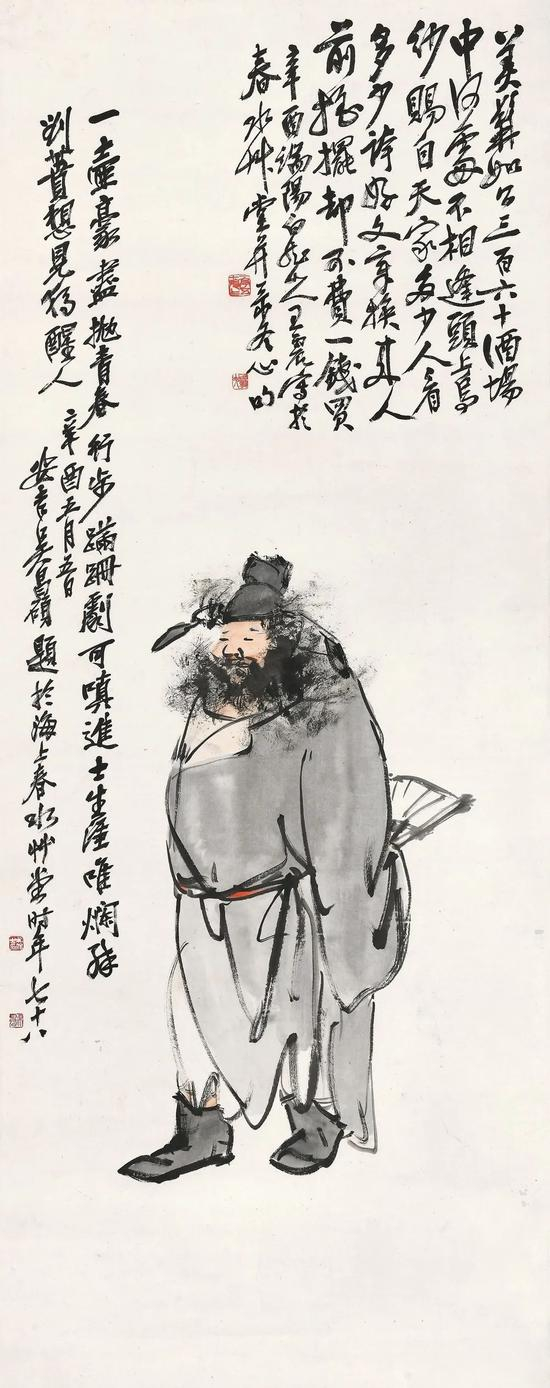 美髯如公三百六十酒場
中何處不相逢頭上烏
紗賜自天家多少人看
多少詩好文章換來人
前搖擺却不費一錢買
辛酉端陽白龍山人王震寫於
春水艸堂并录冬心句
一壺豪盡拋青春行步蹣跚劇可嗔進士生涯唯爛醉
劉蕡想見獨醒人
辛酉五月五日
安吉吳昌碩題於海上春水艸堂時年七十八